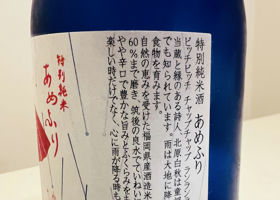 特別純米酒 あめふり
ピッチピッチ チャップチャップ ランランラン
当蔵と縁のある詩人、北原白秋は童謡
でも知られています。雨は大地に降
食物を育みます。
自然の恵みを受けた福岡県産酒米
60%まで磨き、筑後の良水でていねい
やや辛口で豊かな旨みとふくらみを
楽しい時だけでなく、心に雨が降る時も
特別純米
あめふり